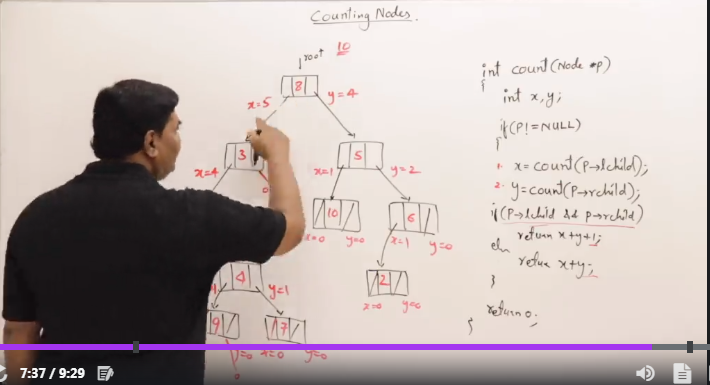 Counting Nodes.
root 10
8
x=5 y=4
3 5
x=4 0 x=1 y=2
10 6
x=0 y=0 x=1 y=0
4 2
y=1 x=0 y=0
9 7
y=0 x=0 y=0
0
int count(Node *p)
{
int x,y;
if(P!=NULL)
{
1. x=count(P→lchild);
2. y=count(P→rchild);
if(P→lchild && p→rchild)
return x+y+1;
else
retun x+y;
}
return 0;
}
7:37 / 9:29